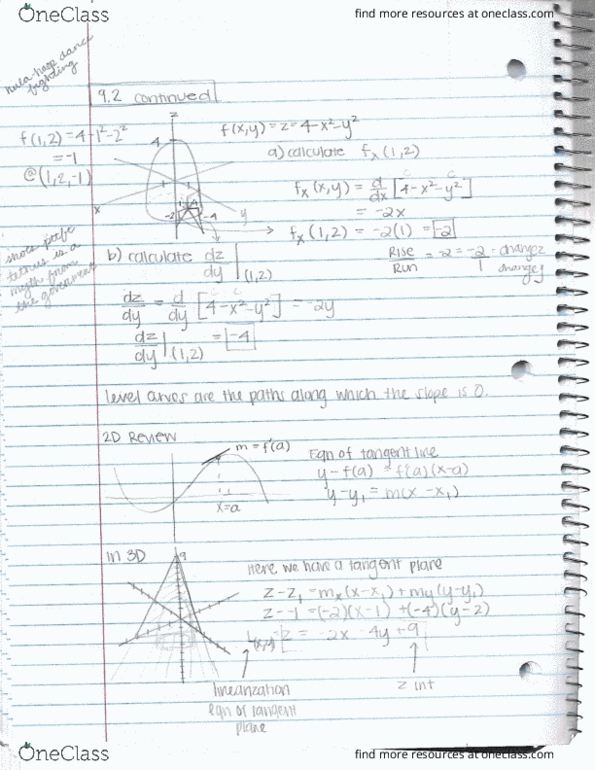 OneClass
find more resources at oneclass.com
hula hoop dance
fighting
9.2 continued
f(1,2)=4-1²-2²
=-1
@(1,2,-1)
z
4
x
y
-2
-4
f(x,y)=z=4-x²-y²
a) calculate fx(1,2)
fx(x,y) = d/dx [4-x²-y²]
c c
= -2x
→ fx(1,2) = -2(1) = -2
Rise/Run = -2 = -2/1 change z/change
is a
myth from
the government
b) calculate dz/dy |(1,2)
dz/dy = d/dy [4-x²-y²] = -2y
c c
dz/dy |(1,2) = -4
level curves are the paths along which the slope is 0.
2D Review
m=f'(a)
x=a
Eqn of tangent line
y-f(a) = f'(a)(x-a)
y-y₁ = m(x-x₁)
In 3D
9
Here we have a tangent plane
z-z₁ = mx(x-x₁)+my(y-y₁)
z--1 = (-2)(x-1) + (-4)(y-2)
L(x,y) = z = -2x-4y+9
linearization
eqn of tangent
plane
z int
OneClass
find more resources at oneclass.com